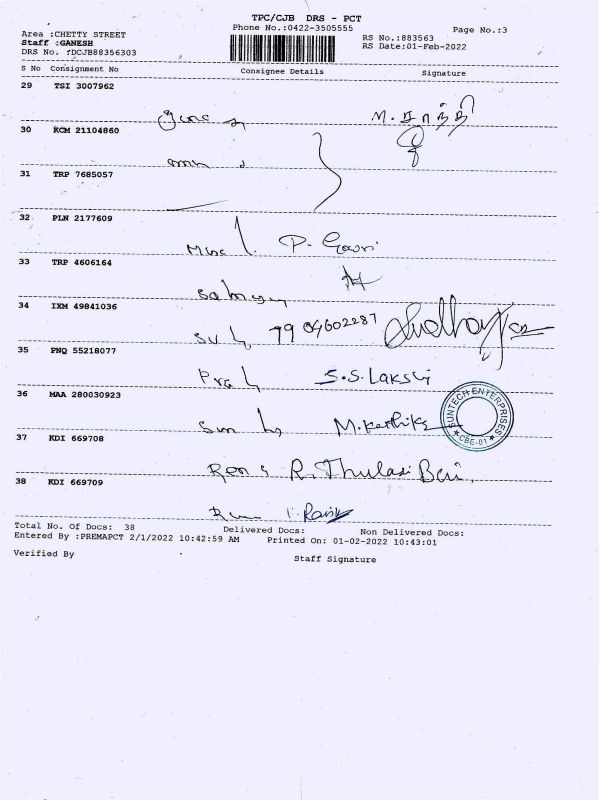 TPC/CJB DRS - PCT
Phone No.:0422-3505555
Page No.:3
Area :CHETTY STREET
RS No.:883563
Staff :GANESH
RS Date:01-Feb-2022
DRS No. :DCJB88356303
S No Consignment No Consignee Details Signature
29 TSI 3007962
30 KCM 21104860
31 TRP 7685057
32 PLN 2177609
P. Gowri
33 TRP 4606164
34 IXM 49841036
35 PNQ 55218077
S.S. Laksh
36 MAA 280030923
SUNTECH ENTERPRISES
★ CBE-01 ★
M. Karthika
37 KDI 669708
R. Thulasi Bai
38 KDI 669709
Total No. Of Docs: 38 Delivered Docs: Non Delivered Docs:
Entered By :PREMAPCT 2/1/2022 10:42:59 AM Printed On: 01-02-2022 10:43:01
Verified By Staff Signature